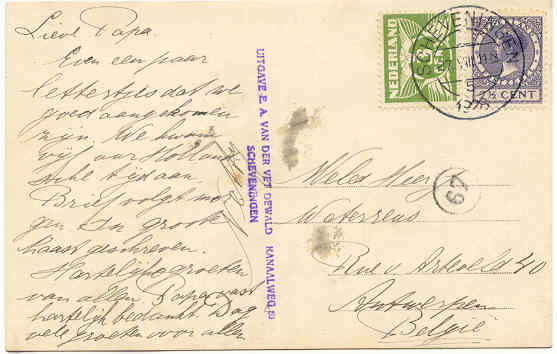 Lieve Papa.
Even een paar
lettertjes dat we
goed aangekomen
zijn. We kwamen
vijf uur Holland
sche tijd aan.
Brief volgt mor
gen. In groote
haast geschreven.
Hartelijke groeten
van allen. Papa vast
hartelijk bedankt. Dag
vele groeten voor allen
UITGAVE E. A. VAN DER VET DEWALD KANAALWEG
SCHEVENINGEN
NEDERLAND
SCHEVENINGEN
1928
CENT
29
Weled Heer
Waterreus
Rue v. Artevelde 40
Antwerpen
België